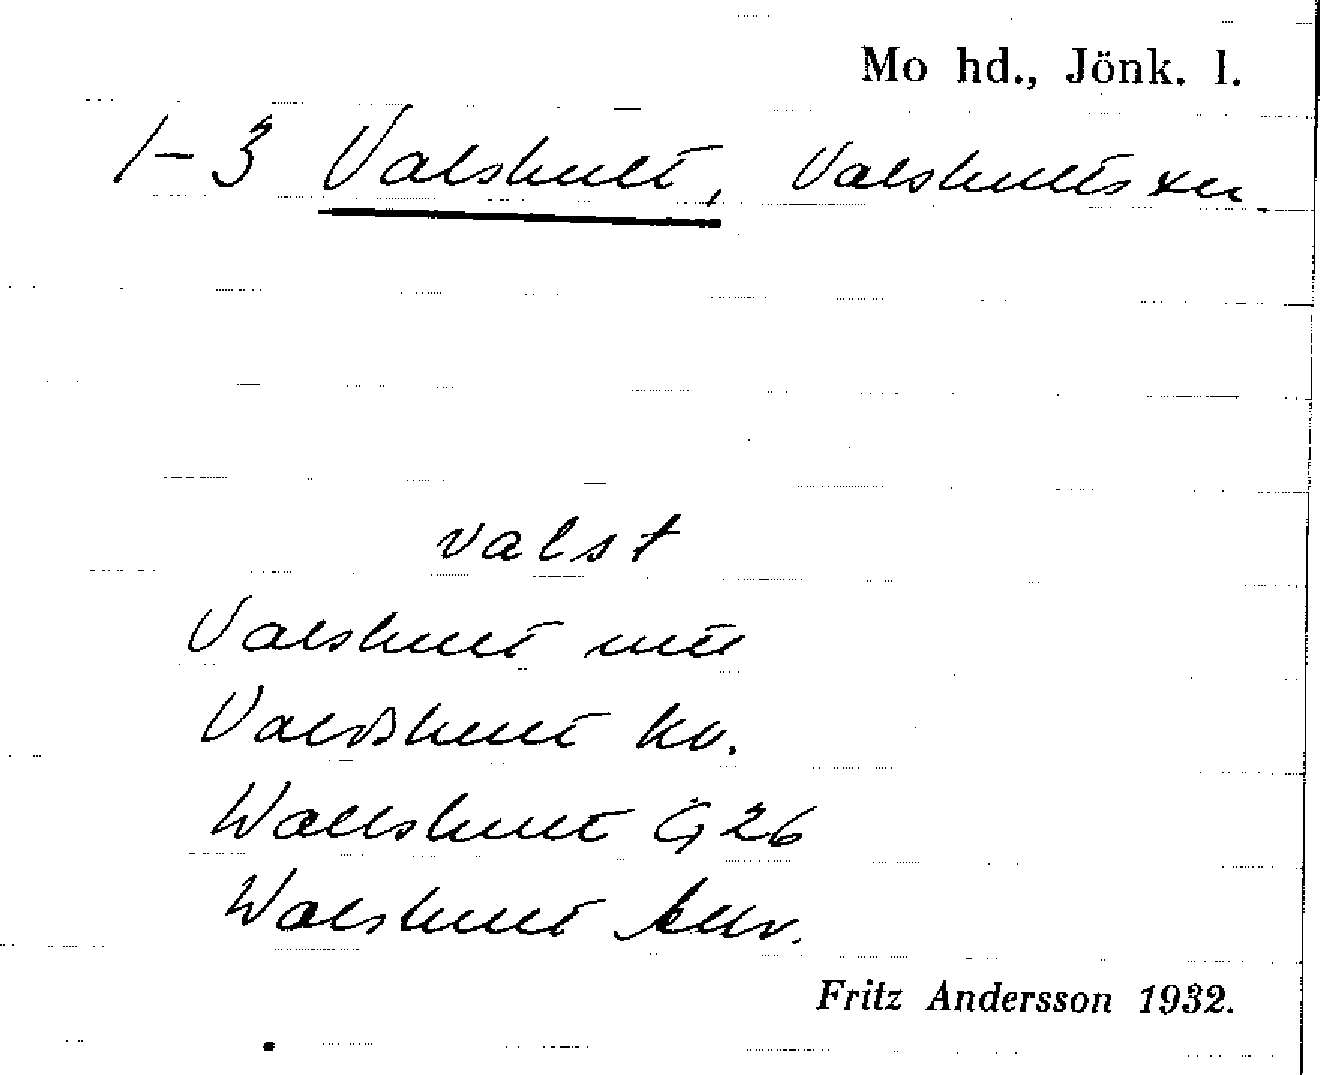 Mo hd., Jönk. l.
1-3 Valshult, Valshults sn.
valst
Valshult
Valdshult kv.
Wallshult G 26
Walshult
Fritz Andersson 1932.